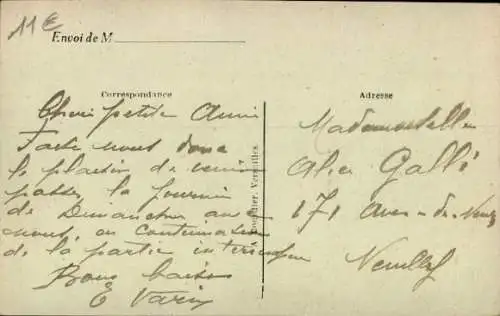 11€
Envoi de M
Correspondance
Chère petite Amie
Faite nous donc
le plaisir de venir
passer la journée
de Dimanche avec
nous, en continuation
de la partie
Bons baisers
E Varin
Adresse
Mademoiselle
Alice Galli
171 Aven de
Neuilly
Versailles.